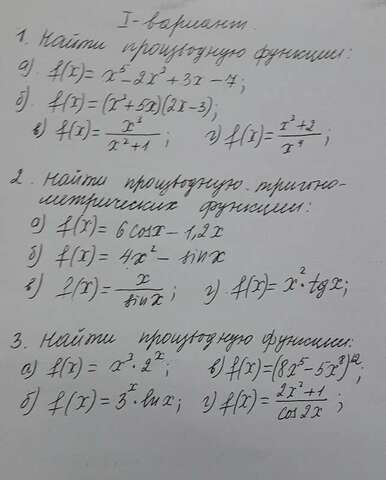 I-вариант.
1. Найти производную функции:
а) f(x) = x⁵ - 2x³ + 3x - 7;
б) f(x) = (x³ + 5x)(2x - 3);
в) f(x) = x³/(x² + 1); г) f(x) = (x³ + 2)/x⁴;
2. Найти производную тригоно-
метрических функции:
а) f(x) = 6cosx - 1,2x
б) f(x) = 4x² - sinx
в) f(x) = x/sinx; г) f(x) = x² · tgx;
3. Найти производную функции:
а) f(x) = x³ · 2ˣ; в) f(x) = (8x⁵ - 5x⁸)¹²;
б) f(x) = 3ˣ · lnx; г) f(x) = (2x² + 1)/cos2x;